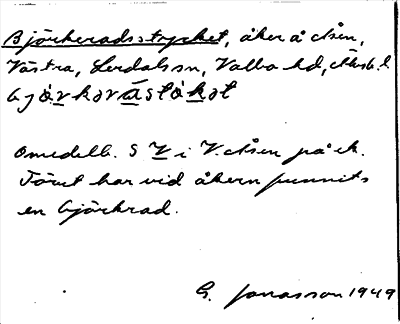 Björkeradsstycket, åker å Åsen,
Västra, Lerdals sn, Valbo hd, Älvsb. l
bjö̀rkəràstỏ́kət
Omedelb. S V i V. Åsen på ek.
Förut har vid åkern funnits
en björkrad.
G. Jonasson 1949